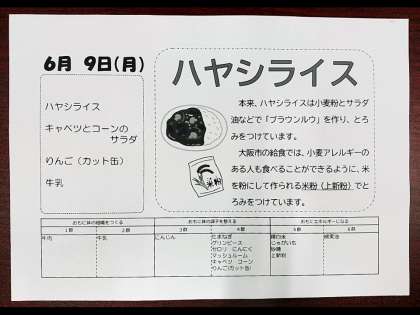 6月 9日(月)
ハヤシライス
キャベツとコーンの
サラダ
りんご(カット缶)
牛乳
ハヤシライス
本来、ハヤシライスは小麦粉とサラダ
油などで「ブラウンルウ」を作り、とろ
みをつけています。
大阪市の給食では、小麦アレルギーの
ある人も食べることができるように、米
を粉にして作られる米粉(上新粉)でと
ろみをつけています。
米粉
おもに体の組織をつくる おもに体の調子を整える おもにエネルギーになる
1群 2群 3群 4群 5群 6群
牛肉 牛乳 にんじん たまねぎ 精白米 綿実油
グリンピース じゃがいも
セロリ にんにく 砂糖
マッシュルーム 上新粉
キャベツ コーン
りんご(カット缶)